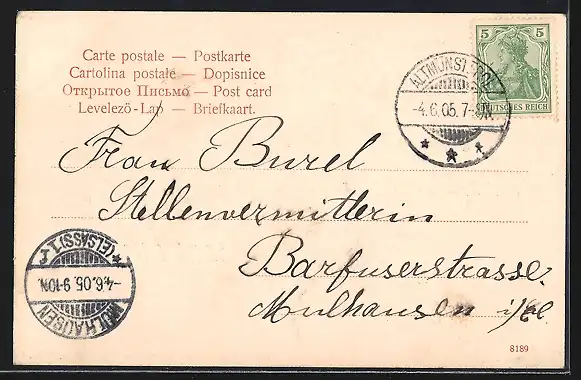 Carte postale — Postkarte
Cartolina postale — Dopisnice
Открытое Письмо — Post card
Levelezö-Lap — Briefkaart.
5 5
DEUTSCHES REICH
ALTMÜNSTEROL
-4.6.05.7-8N.
Frau Burel
Stellenvermittlerin
Barfuserstrasse.
Mulhausen i/El.
*(ELSASS)1f
-4.6.05.9-10N.
MÜLHAUSEN
8189